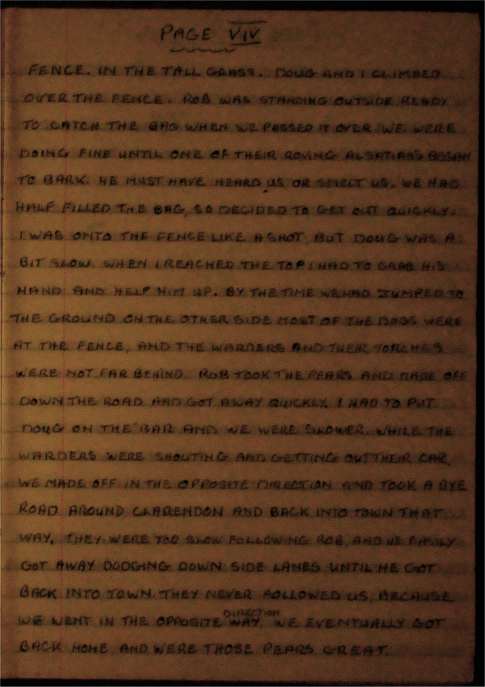 PAGE VIV
FENCE. IN THE TALL GRASS. DOUG AND I CLIMBED
OVER THE FENCE. ROB WAS STANDING OUTSIDE READY
TO CATCH THE BAG WHEN WE PASSED IT OVER. WE WERE
DOING FINE UNTIL ONE OF THEIR ROVING ALSATIANS BEGAN
TO BARK. HE MUST HAVE HEARD US OR SMELT US. WE HAD
HALF FILLED THE BAG, SO DECIDED TO GET OUT QUICKLY.
I WAS ONTO THE FENCE LIKE A SHOT, BUT DOUG WAS A
BIT SLOW. WHEN I REACHED THE TOP I HAD TO GRAB HIS
HAND AND HELP HIM UP. BY THE TIME WE HAD JUMPED TO
THE GROUND ON THE OTHER SIDE MOST OF THE DOGS WERE
AT THE FENCE, AND THE WARDERS AND THEIR TORCHES
WERE NOT FAR BEHIND. ROB TOOK THE PEARS AND MADE OFF
DOWN THE ROAD AND GOT AWAY QUICKLY. I HAD TO PUT
DOUG ON THE BAR AND WE WERE SLOWER. WHILE THE
WARDERS WERE SHOUTING AND GETTING OUT THEIR CAR,
WE MADE OFF IN THE OPPOSITE DIRECTION AND TOOK A BYE
ROAD AROUND CLARENDON AND BACK INTO TOWN THAT
WAY. THEY WERE TOO SLOW FOLLOWING ROB, AND HE EASILY
GOT AWAY DODGING DOWN SIDE LANES UNTIL HE GOT
BACK INTO TOWN. THEY NEVER FOLLOWED US, BECAUSE
DIRECTION
WE WENT IN THE OPPOSITE WAY. WE EVENTUALLY GOT
BACK HOME, AND WERE THOSE PEARS GREAT.